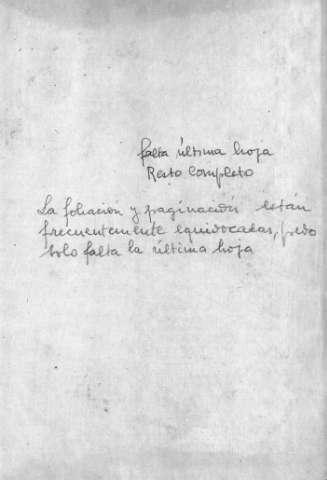 falta última hoja
Resto Completo
La foliación y paginación están
frecuentemente equivocadas, pero
solo falta la última hoja